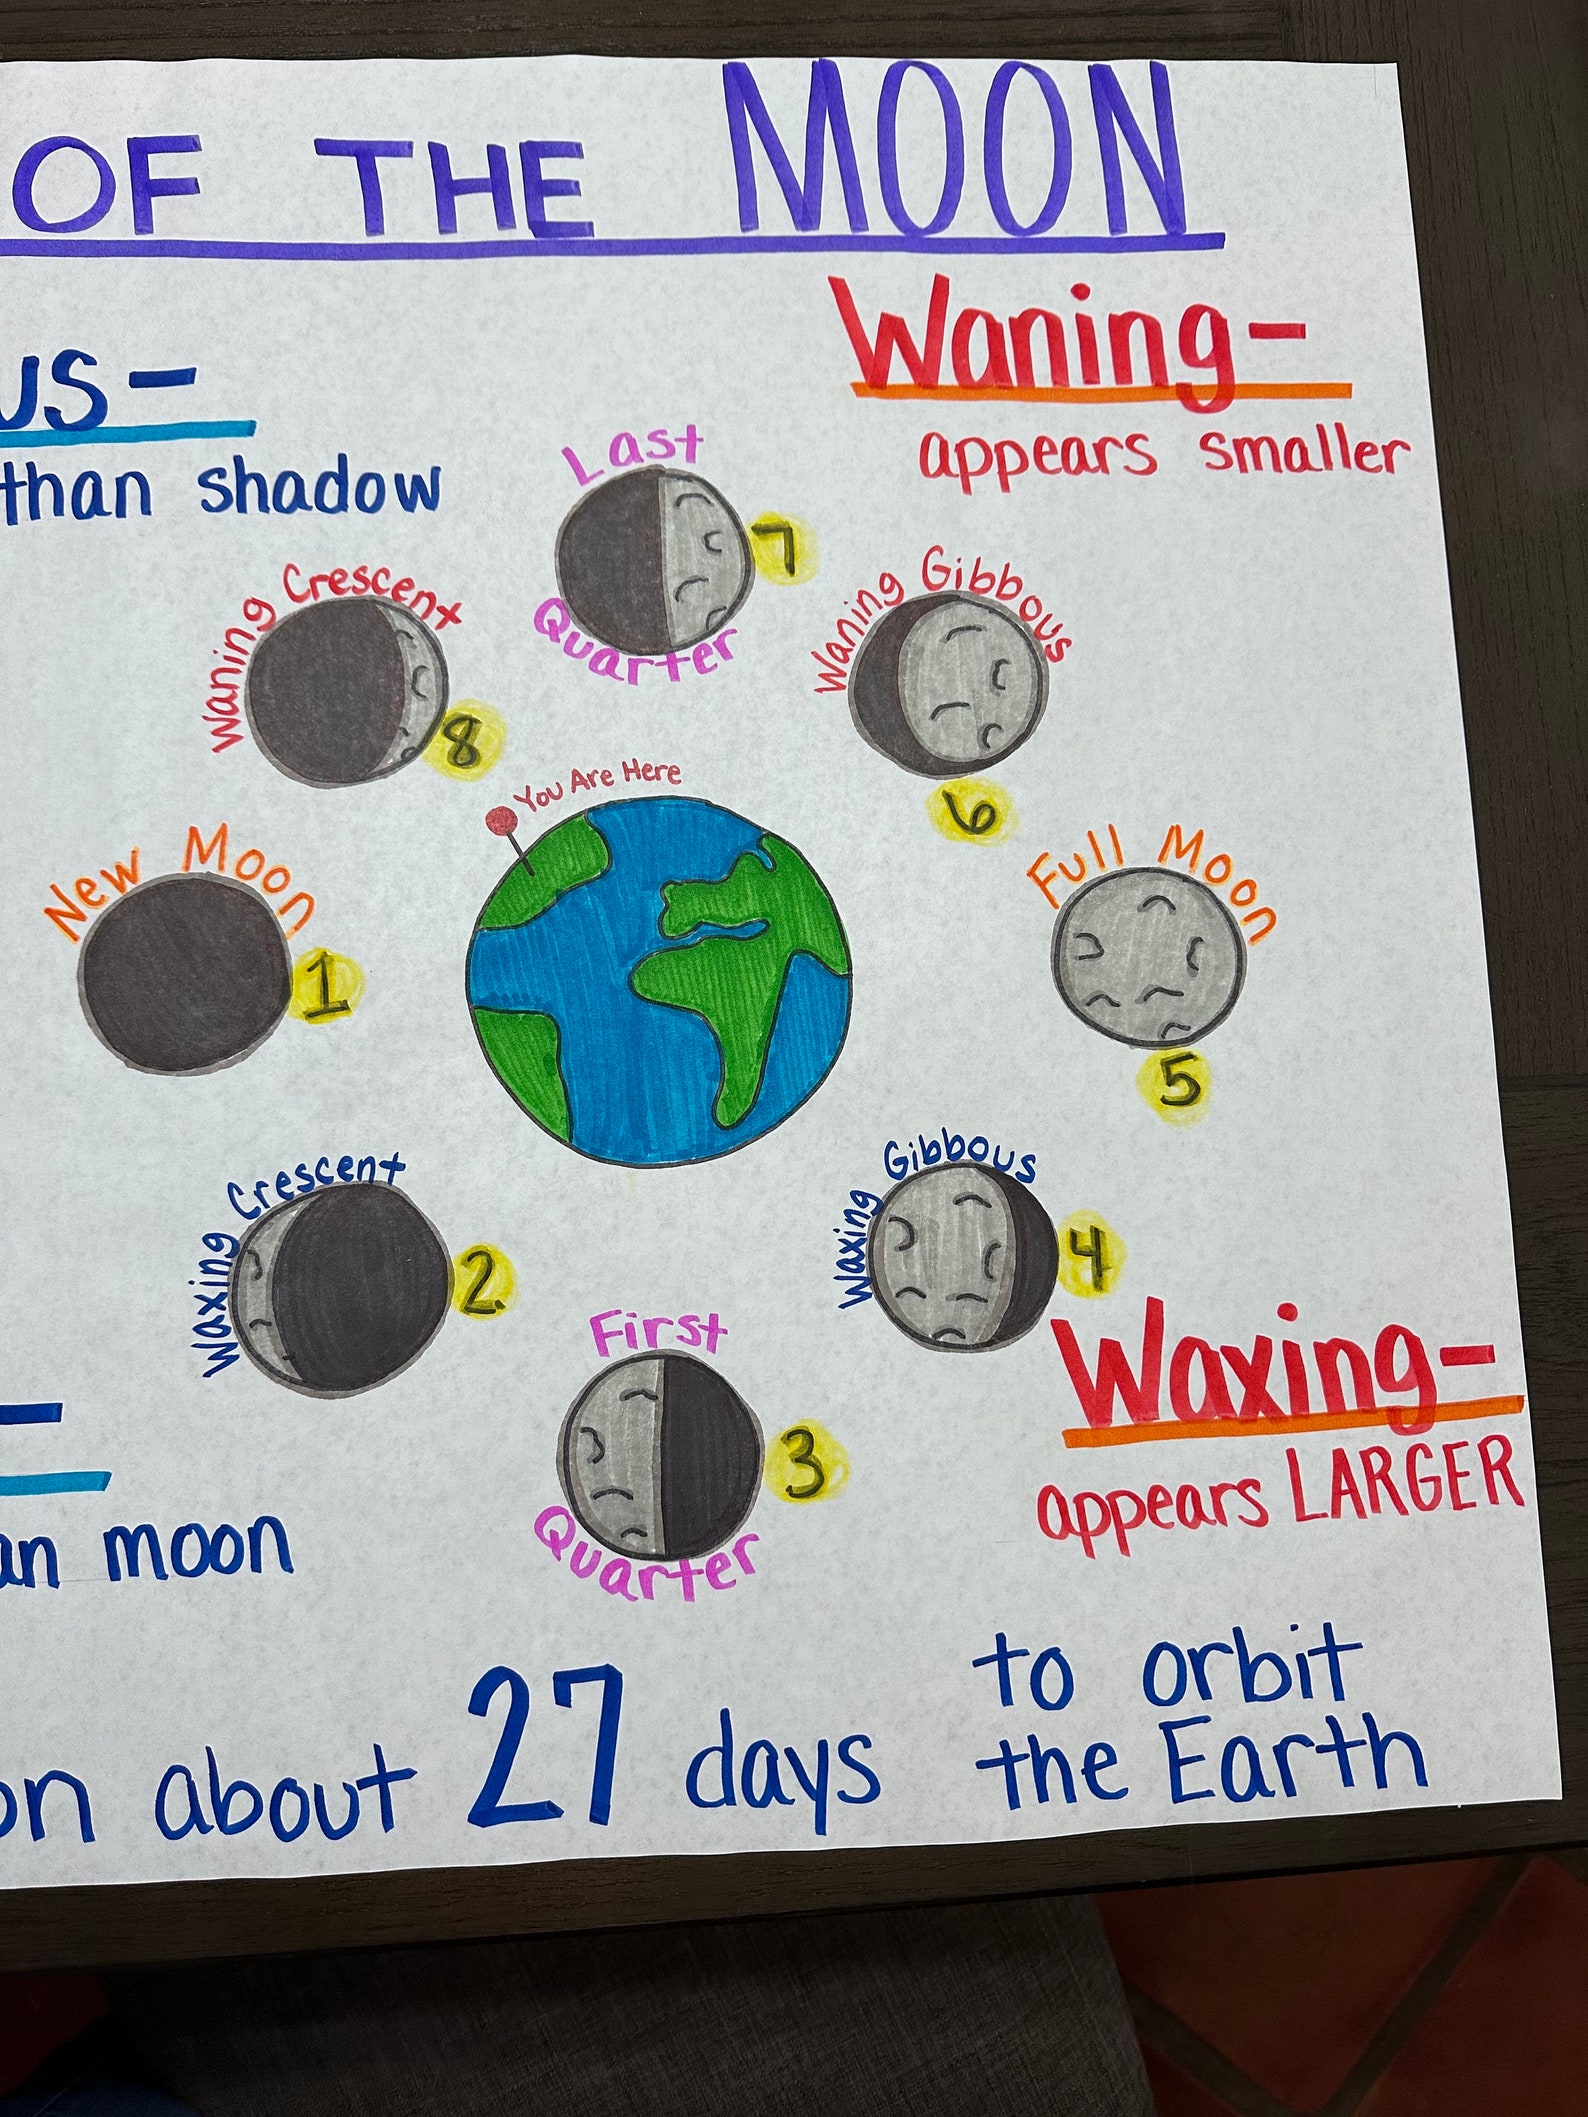 OF THE MOON
Waning-
appears smaller
us-
than shadow
Last
Quarter
7
Waning Gibbous
6
Waning Crescent
8
You Are Here
New Moon
1
Full Moon
5
Waxing Crescent
2.
Waxing Gibbous
4
First
Quarter
3
Waxing-
appears LARGER
-
an moon
on about 27 days to orbit
the Earth